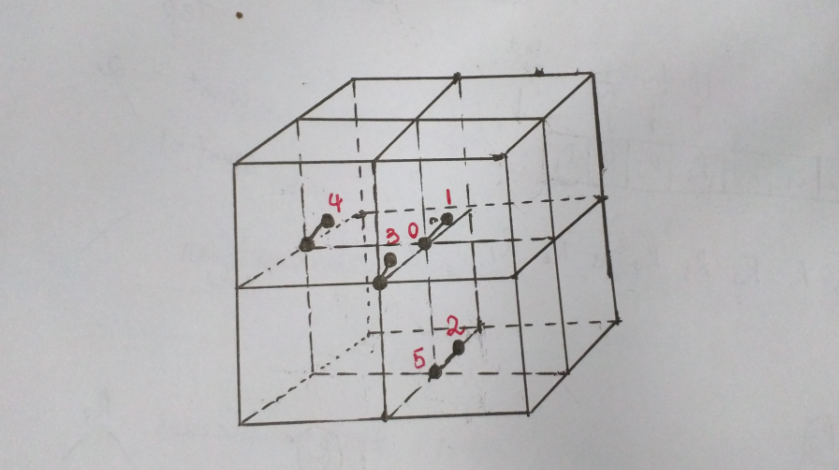 4
1
3
0
2
5